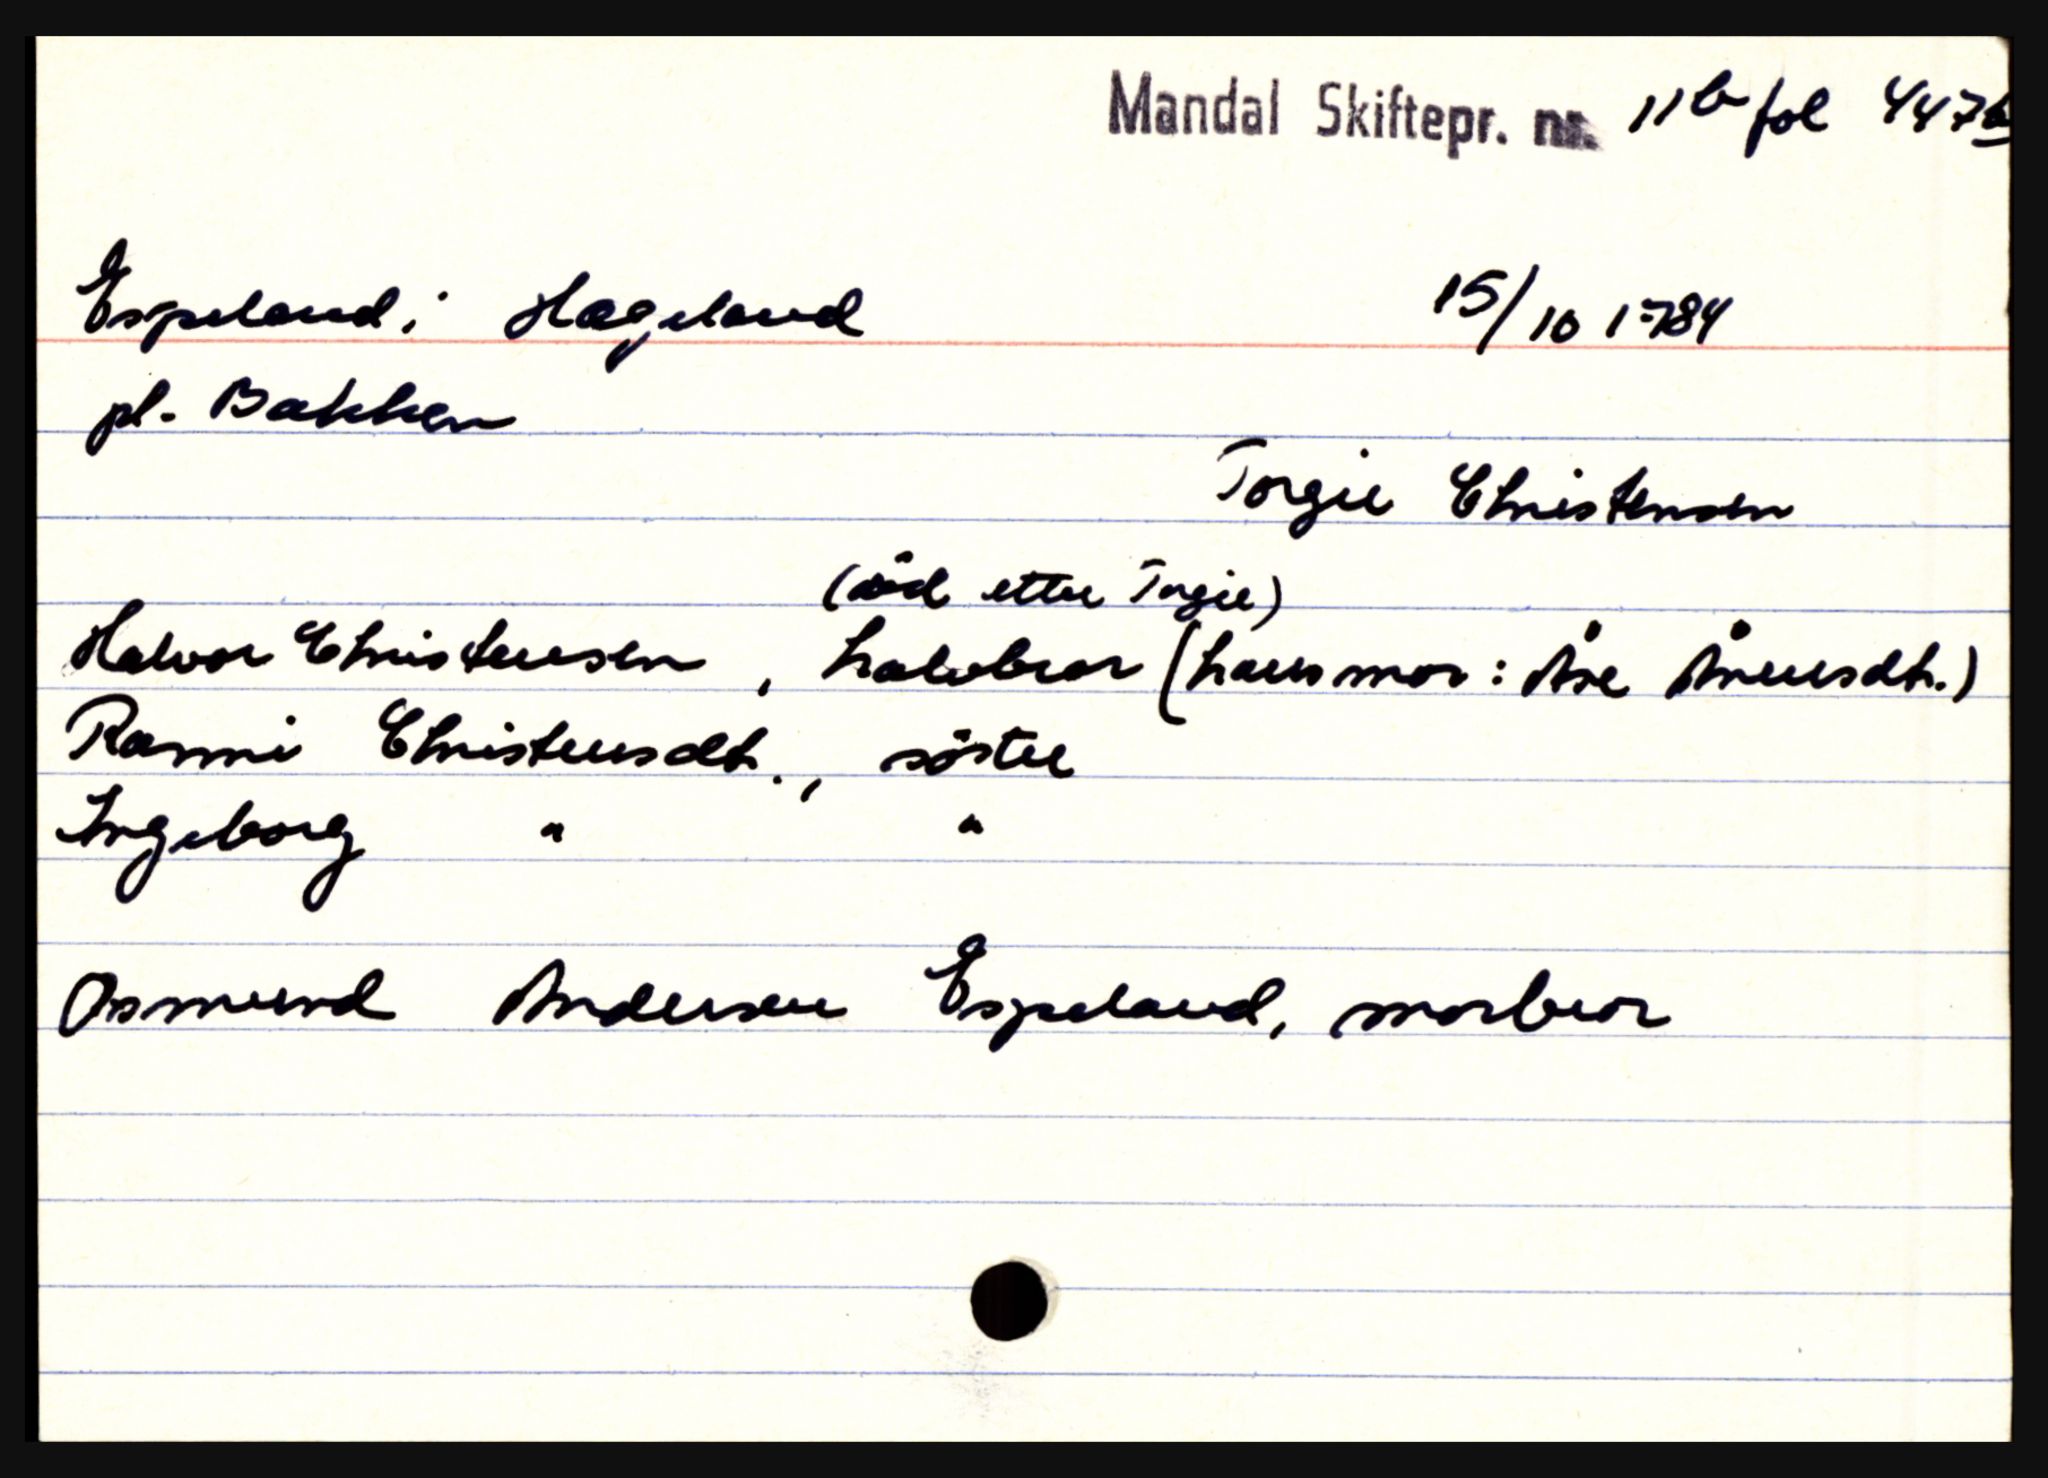 Mandal Skiftepr. nr. 11b fol 447b
Espeland i Hægeland 15/10 1784
pl. Bakken
Torgie Christensen
(död etter Torgie)
Halvor Christensen, halvbror (hans mor: Åse Ånensdtr.)
Ranni Christensdtr., söster
Ingeborg " "
Osmund Andersen Espeland, morbror